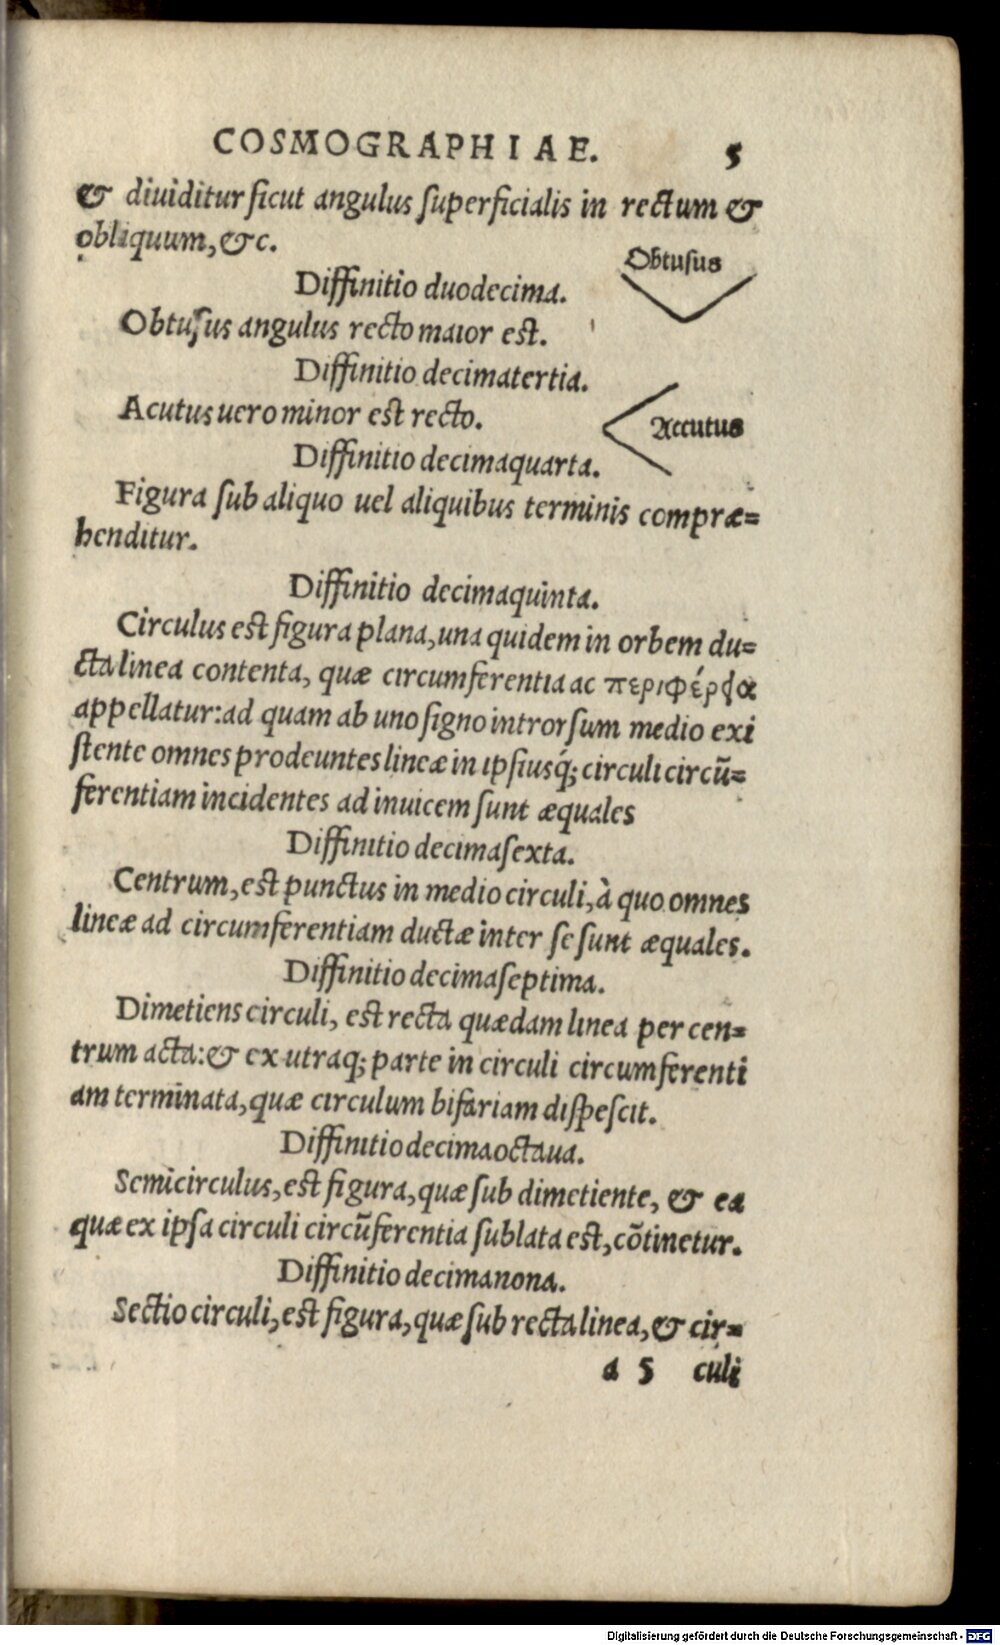 COSMOGRAPHIAE. 5
& diuiditur ſicut angulus ſuperficialis in rectum &
obliquum, &c.
Obtuſus
Diffinitio duodecima.
Obtuſus angulus recto maior est.
Diffinitio decimatertia.
Acutus uero minor est recto.
Accutus
Diffinitio decimaquarta.
Figura ſub aliquo uel aliquibus terminis compræ=
henditur.
Diffinitio decimaquinta.
Circulus est figura plana, una quidem in orbem du=
cta linea contenta, quæ circumferentia ac
appellatur: ad quam ab uno ſigno introrſum medio exi
ſtente omnes prodeuntes lineæ in ipſiusq́; circuli circũ=
ferentiam incidentes ad inuicem ſunt æquales
Diffinitio decimaſexta.
Centrum, est punctus in medio circuli, à quo omnes
lineæ ad circumferentiam ductæ inter ſe ſunt æquales.
Diffinitio decimaſeptima.
Dimetiens circuli, est recta quædam linea per cen=
trum acta: & ex utraq; parte in circuli circumferenti
am terminata, quæ circulum bifariam diſpeſcit.
Diffinitio decimaoctaua.
Semicirculus, est figura, quæ ſub dimetiente, & ea
quæ ex ipſa circuli circũferentia ſublata est, cõtinetur.
Diffinitio decimanona.
Sectio circuli, est figura, quæ ſub recta linea, & cir=
a 5 culi
Digitalisierung gefördert durch die Deutsche Forschungsgemeinschaft - DFG